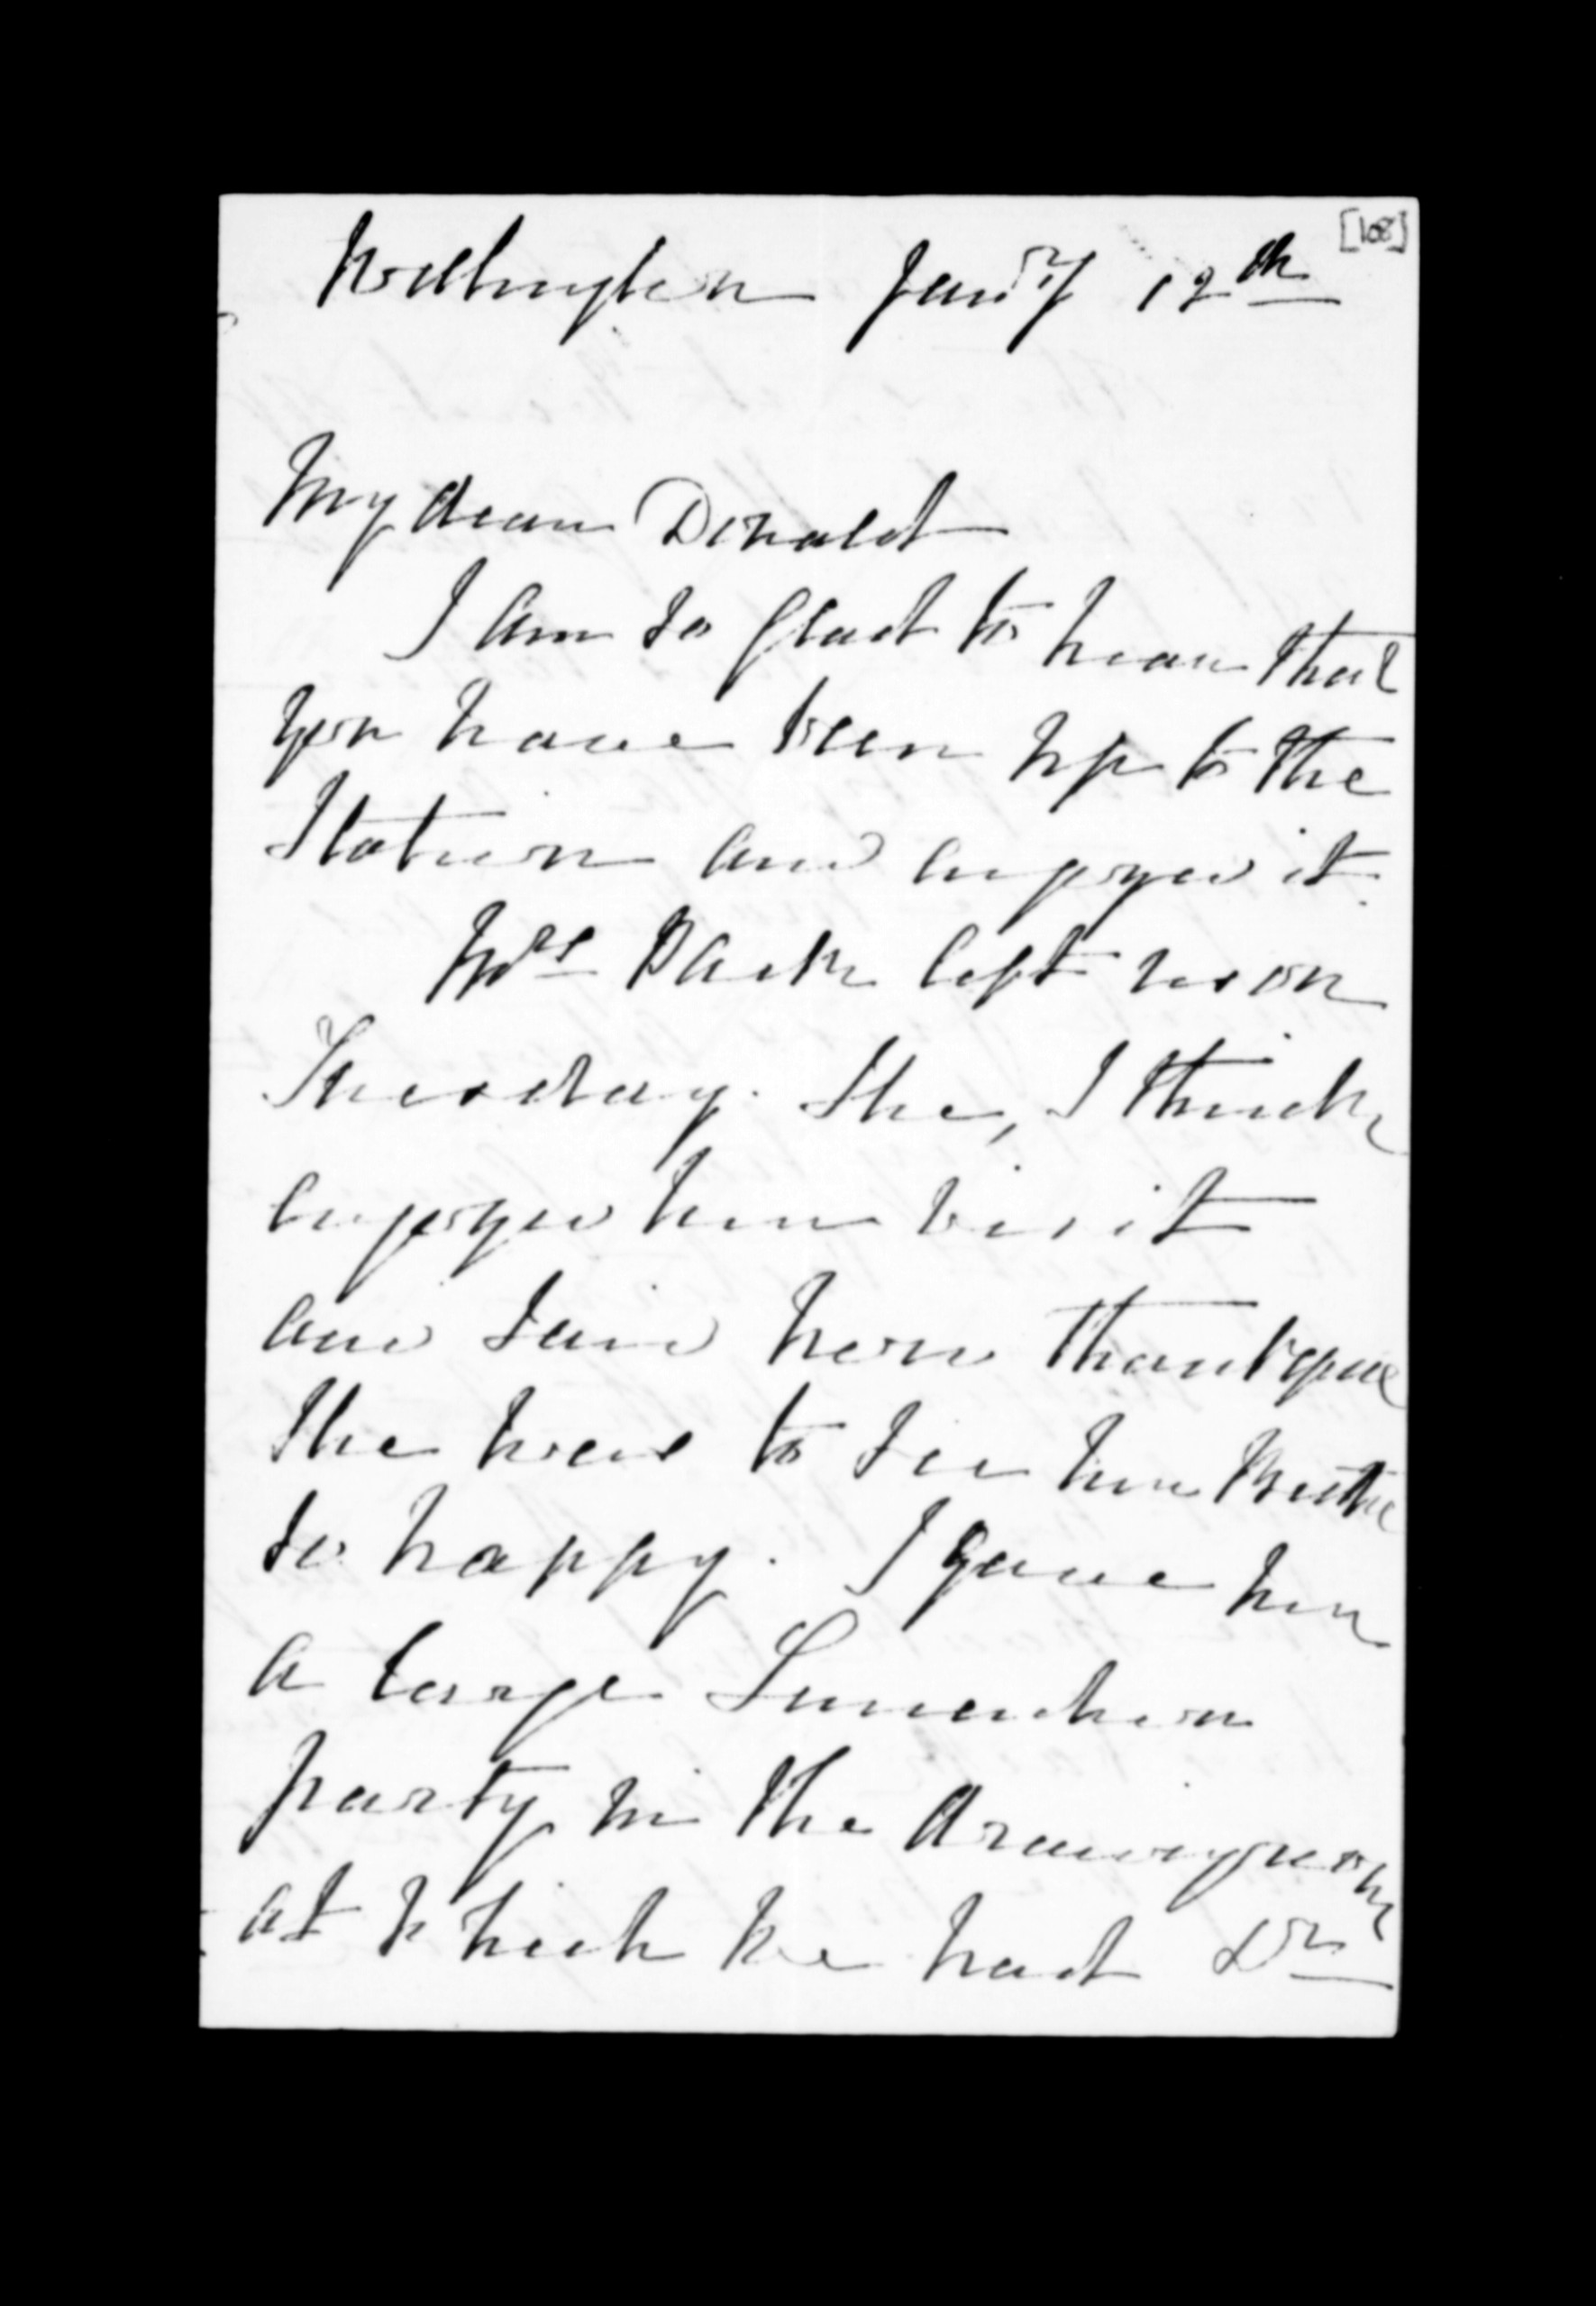 [108]
Wellington Jan'ry 12th
My dear Donald
I am so glad to hear that
you have been up to the
Station and enjoyed it.
Mrs Park left us on
Tuesday. She, I think
enjoyed her visit
and said how thankful
she was to see her Brother
so happy. I gave her
a large Luncheon
party in the drawingroom
at which we had Dr